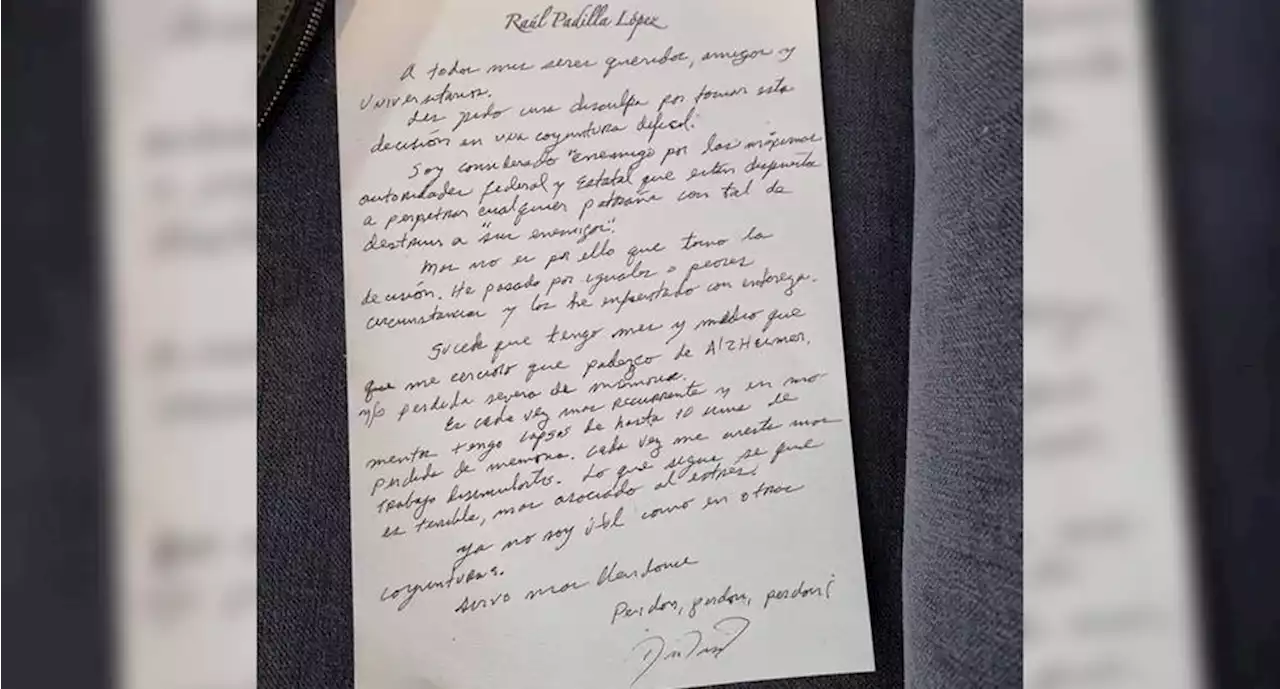 Raúl Padilla López
A todos mis seres queridos, amigos y
Universitarios.
Les pido una disculpa por tomar esta
decisión en una coyuntura difícil.
Soy considerado "enemigo por las máximas
autoridades federal y Estatal que están dispuestas
a perpetrar cualquier patraña con tal de
destruir a "sus enemigos".
Mas no es por ello que tomo la
decisión. He pasado por iguales o peores
circunstancias y los he enfrentado con entereza.
Sucede que tengo mes y medio que
que me cercioro que padezco de AlzHeimer,
y/o perdida severa de memoria.
Es cada vez mas recurrente y en mo
mentos tengo lapsos de hasta 10 de
perdida de memoria. Cada vez me cuesta mas
trabajo disimularlos. Lo que sigue se que
es terrible, mas asociado al estres.
Ya no soy útil como en otras
coyunturas.
Sirvo mas yendome
Perdon, perdon, perdon!